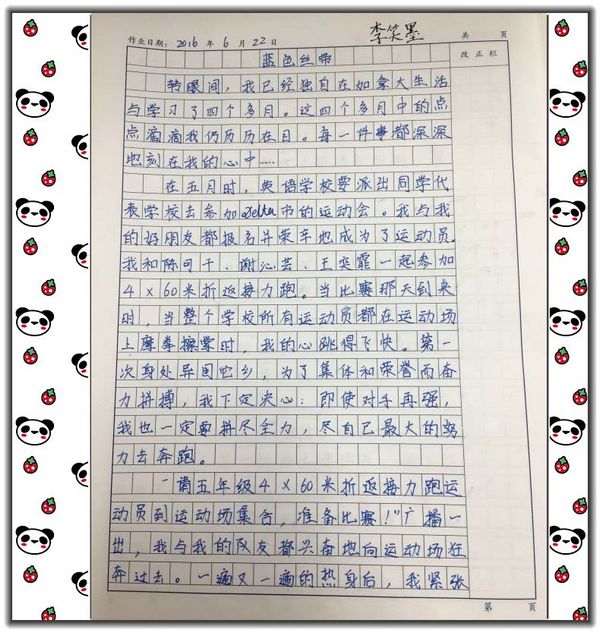 李笑墨
作业日期: 2016 年 6 月 22 日 共 页
蓝色丝带 改正栏
转眼间，我已经独自在加拿大生活
与学习了四个多月。这四个多月中的点
点滴滴我仍历历在目。每一件事都深深
地刻在我的心中……
在五月时，英语学校要派出同学代
表学校去参加Delta市的运动会。我与我
的好朋友都报名并荣幸地成为了运动员。
我和陈可千、谢沁芸、王奕霏一起参加
4×60米折返接力跑。当比赛那天到来
时，当整个学校所有运动员都在运动场
上摩拳擦掌时，我的心跳得飞快。第一
次身处异国它乡，为了集体和荣誉而奋
力拼搏，我下定决心：即使对手再强，
我也一定要拼尽全力，尽自己最大的努
力去奔跑。
“请五年级4×60米折返接力跑运
动员到运动场集合，准备比赛！”广播一
出，我与我的队友都兴奋地向运动场狂
奔过去。一遍又一遍的热身后，我紧张
第 页